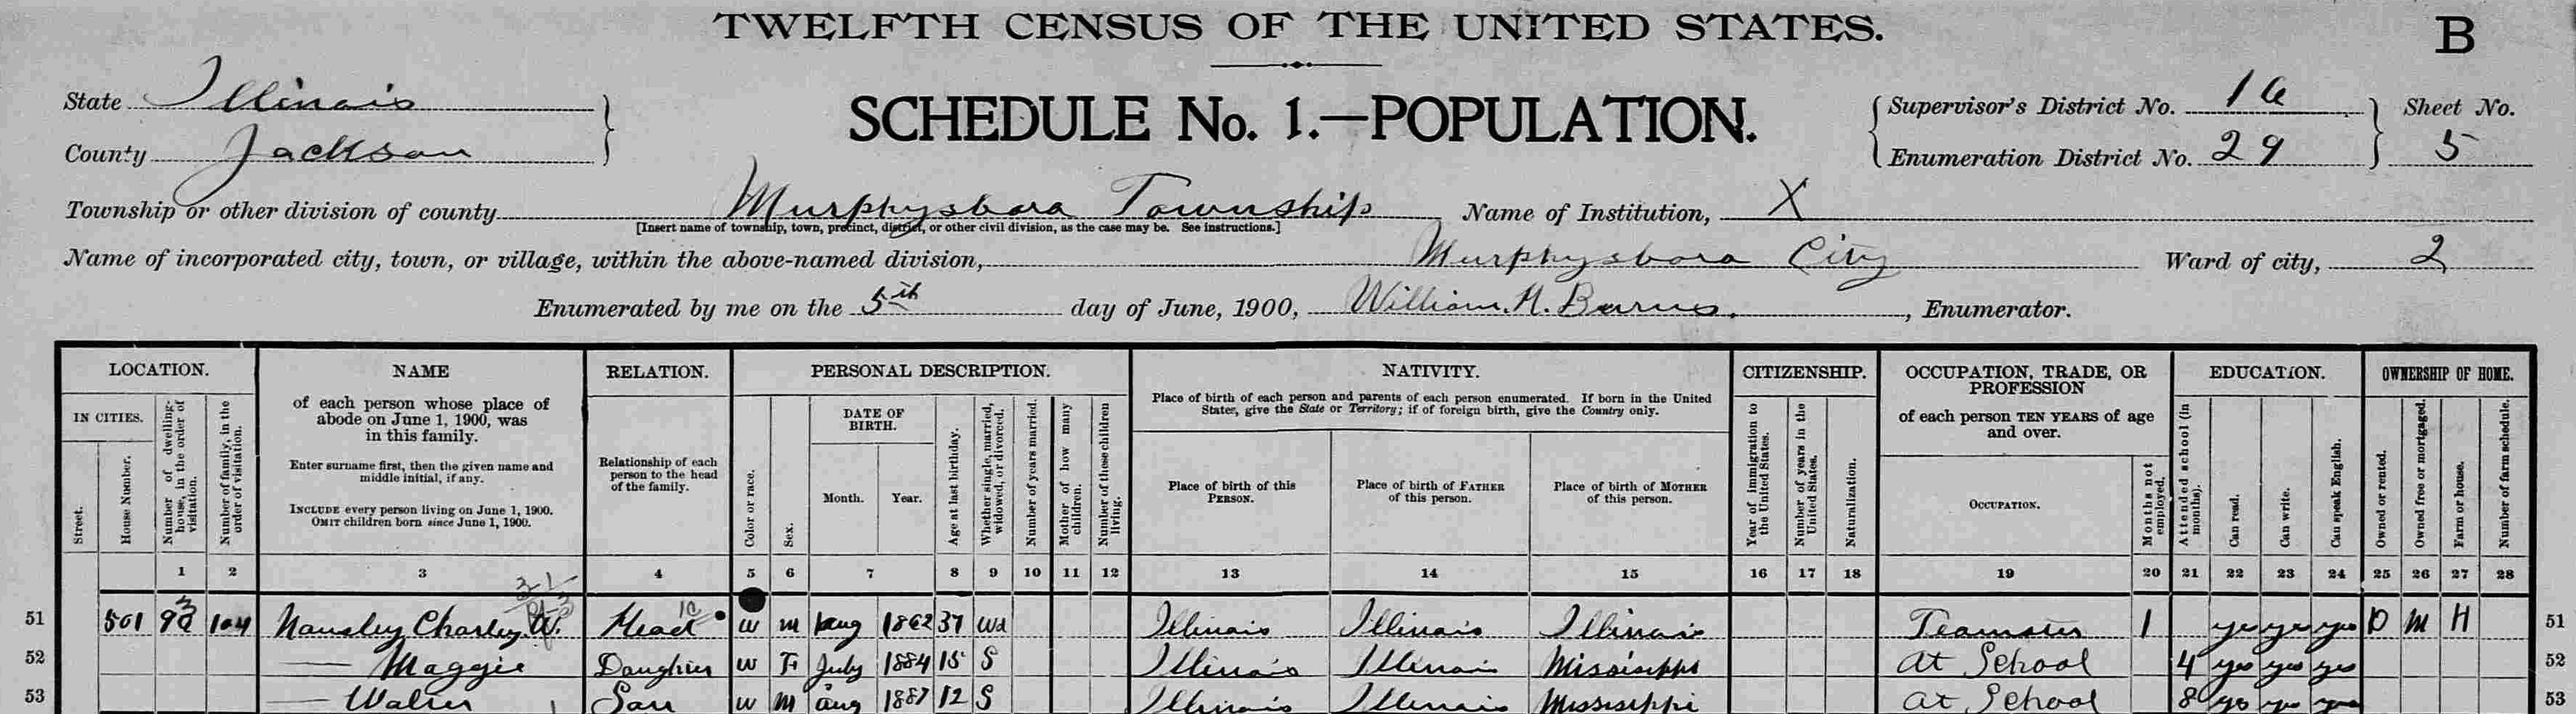 TWELFTH CENSUS OF THE UNITED STATES.
B
State Illinois
County Jackson
SCHEDULE No. 1.—POPULATION.
Supervisor's District No. 16
Enumeration District No. 29
Sheet No.
5
Township or other division of county Murphysboro Township Name of Institution, X
[Insert name of township, town, precinct, district, or other civil division, as the case may be. See instructions.]
Name of incorporated city, town, or village, within the above-named division, Murphysboro City Ward of city, 2
Enumerated by me on the 5th day of June, 1900, William H. Burns, Enumerator.
LOCATION.
IN CITIES.
Street.
House Number.
Number of dwelling-house, in the order of visitation.
Number of family, in the order of visitation.
NAME
of each person whose place of
abode on June 1, 1900, was
in this family.
Enter surname first, then the given name and
middle initial, if any.
INCLUDE every person living on June 1, 1900.
OMIT children born since June 1, 1900.
RELATION.
Relationship of each
person to the head
of the family.
PERSONAL DESCRIPTION.
Color or race.
Sex.
DATE OF
BIRTH.
Month. Year.
Age at last birthday.
Whether single, married, widowed, or divorced.
Number of years married.
Mother of how many children.
Number of these children living.
NATIVITY.
Place of birth of each person and parents of each person enumerated. If born in the United
States, give the State or Territory; if of foreign birth, give the Country only.
Place of birth of this
PERSON.
Place of birth of FATHER
of this person.
Place of birth of MOTHER
of this person.
CITIZENSHIP.
Year of immigration to the United States.
Number of years in the United States.
Naturalization.
OCCUPATION, TRADE, OR
PROFESSION
of each person TEN YEARS of age
and over.
OCCUPATION.
Months not employed.
EDUCATION.
Attended school (in months).
Can read.
Can write.
Can speak English.
OWNERSHIP OF HOME.
Owned or rented.
Owned free or mortgaged.
Farm or house.
Number of farm schedule.
1 2 3 4 5 6 7 8 9 10 11 12 13 14 15 16 17 18 19 20 21 22 23 24 25 26 27 28
51 501 93 104 Charley W. Head W M Aug 1862 37 Wd Illinois Illinois Illinois Teamster 1 yes yes yes O M H 51
52 — Maggie Daughter W F July 1884 15 S Illinois Illinois Mississippi At School 4 yes yes yes 52
53 — Walter Son W M Aug 1887 12 S Illinois Illinois Mississippi At School 8 yes yes yes 53